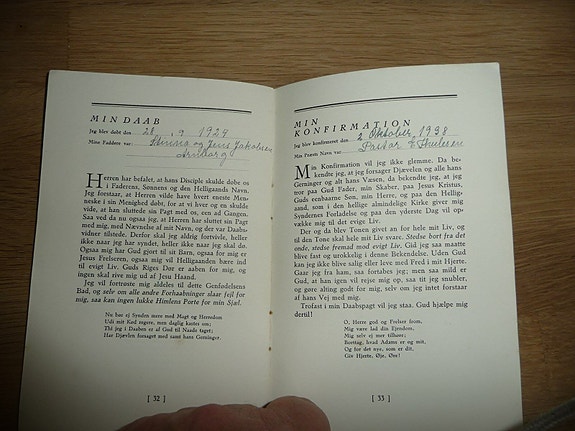 MIN DAAB
Jeg blev døbt den 28. 9. 1924
Mine Faddere var Stinna og Jens Jakobsen
Arnborg
Herren har befalet, at hans Disciple skulde døbe os
i Faderens, Sønnens og den Helligaands Navn.
Jeg forstaar, at Herren vilde have hvert eneste Men-
neske i sin Menighed døbt, for at vi hver og en skulde
vide, at han sluttede sin Pagt med os, een ad Gangen.
Saa ved da nu ogsaa jeg, at Herren har sluttet sin Pagt
med mig, med Nævnelse af mit Navn, og der var Daabs-
vidner tilstede. Derfor skal jeg aldrig fortvivle, heller
ikke naar jeg har syndet, heller ikke naar jeg skal dø.
Ogsaa mig har Gud gjort til sit Barn, ogsaa for mig er
Jesus Frelseren, ogsaa mig vil Helligaanden bære ind
til evigt Liv. Guds Riges Dør er aaben for mig, og
ingen skal rive mig ud af Jesu Haand.
Jeg vil fortrøste mig aldeles til dette Genfødelsens
Bad, og selv om alle andre Forhaabninger slaar fejl for
mig, saa kan ingen lukke Himlens Porte for min Sjæl.
Nu bær ej Synden mere med Magt og Herredom
Udi mit Kød regere, men daglig kastes om;
Thi jeg i Daaben er af Gud til Naade taget;
Har Djævlen forsaget med samt hans Gerninger.
[ 32 ]
MIN
KONFIRMATION
Jeg blev konfirmeret den 2 Oktober 1938
Min Præsts Navn var Pastor
Min Konfirmation vil jeg ikke glemme. Da be-
kendte jeg, at jeg forsager Djævelen og alle hans
Gerninger og alt hans Væsen, da bekendte jeg, at jeg
tror paa Gud Fader, min Skaber, paa Jesus Kristus,
Guds eenbaarne Søn, min Herre, og paa den Hellig-
aand, som i den hellige almindelige Kirke giver mig
Syndernes Forladelse og paa den yderste Dag vil op-
vække mig til det evige Liv.
Der og da blev Tonen givet an for hele mit Liv, og
til den Tone skal hele mit Liv svare. Stedse bort fra det
onde, stedse fremad mod evigt Liv. Gid jeg saa maatte
blive fast og urokkelig i denne Bekendelse. Uden Gud
kan jeg ikke blive salig eller leve med Fred i mit Hjerte.
Gaar jeg fra ham, saa fortabes jeg; men saa mild er
Gud, at han igen vil rejse mig op, saa tit jeg snubler,
og gøre alting godt for mig, selv om jeg intet forstaar
af hans Vej med mig.
Trofast i min Daabspagt vil jeg staa. Gud hjælpe mig
dertil!
O, Herre god og Frelser from,
Mig være lad din Ejendom,
Mig selv ej mer tilhører;
Borttag, hvad Adams er og mit,
Og for det nye, som er dit,
Giv Hjerte, Øje, Øre!
[ 33 ]